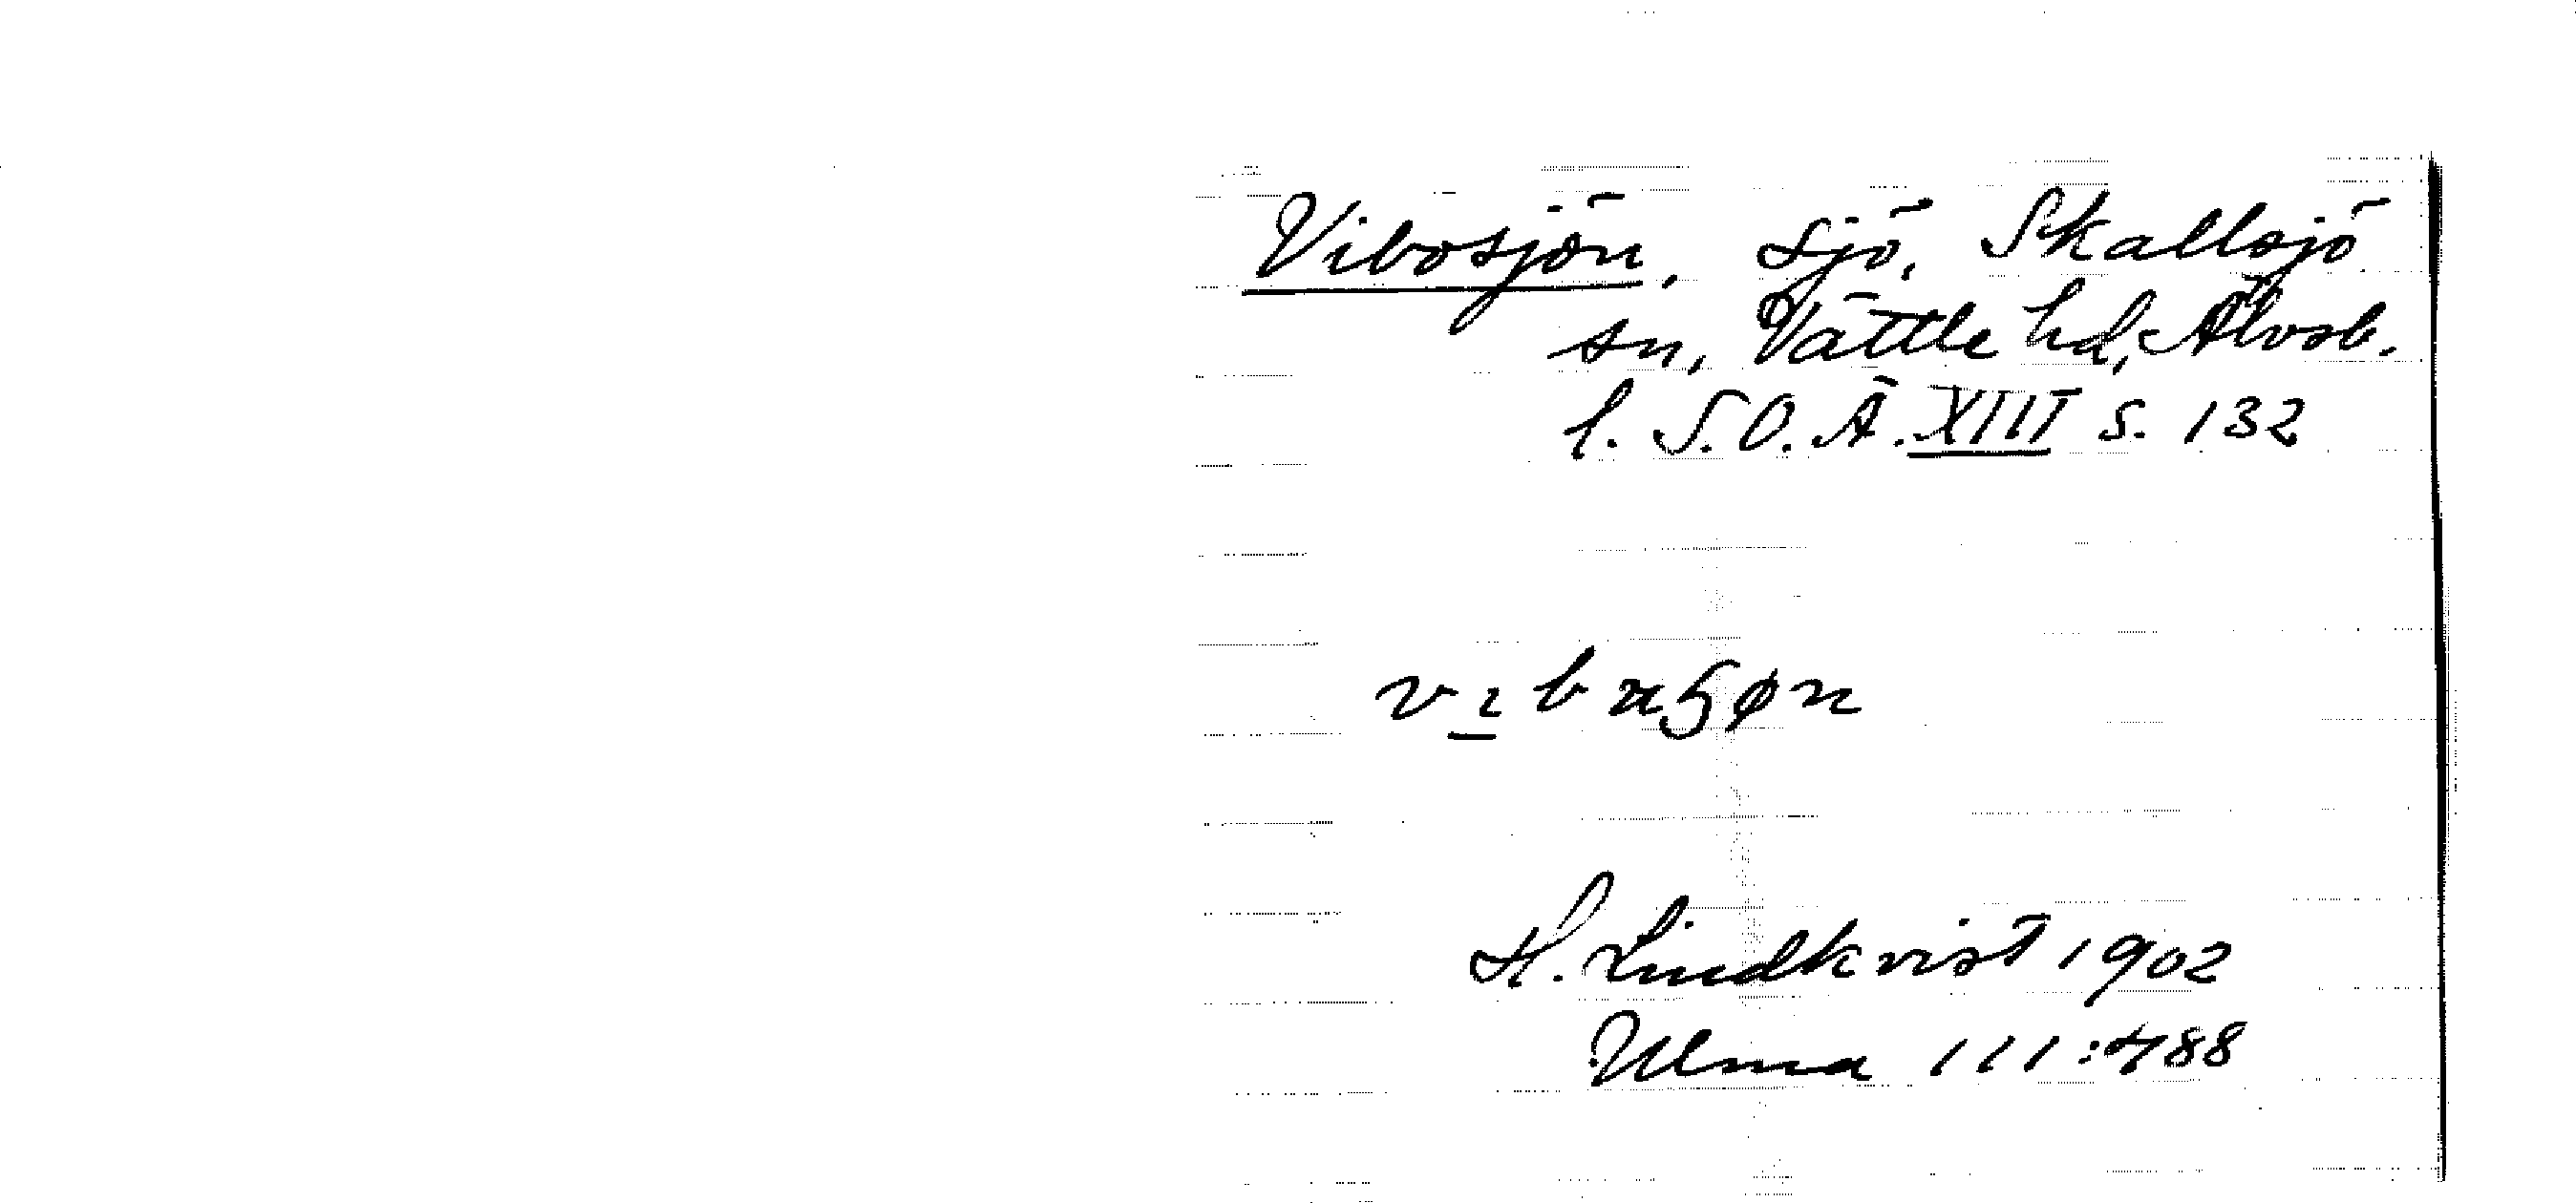 Vibosjön, Sjö, Skallsjö
sn, Vättle hd, Älvsb.
l. S.O.Ä. XIII s. 132
H. Lindkvist 1902
Ulma 111:488